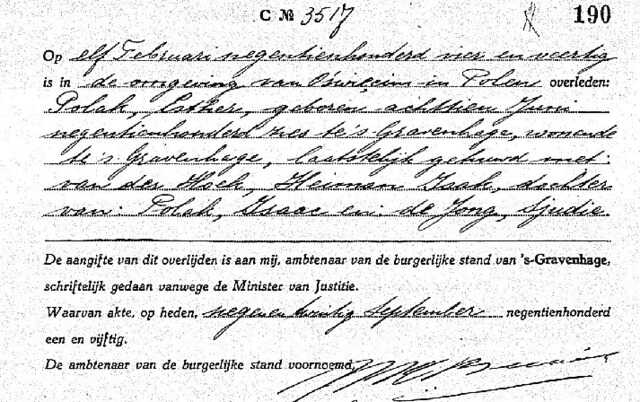 C № 3517 190
Op elf Februari negentienhonderd vier en veertig
is in de omgeving van Oświecim in Polen overleden:
Polak, Esther, geboren achttien Juni
negentienhonderd zes te 's Gravenhage, wonende
te 's Gravenhage, laatstelijk gehuwd met:
van der Hoek, Heiman Isak, dochter
van: Polak, Isaac en: de Jong, Sjudie.
De aangifte van dit overlijden is aan mij, ambtenaar van de burgerlijke stand van 's-Gravenhage,
schriftelijk gedaan vanwege de Minister van Justitie.
Waarvan akte, op heden, negen en twintig September negentienhonderd
een en vijftig.
De ambtenaar van de burgerlijke stand voornoemd,